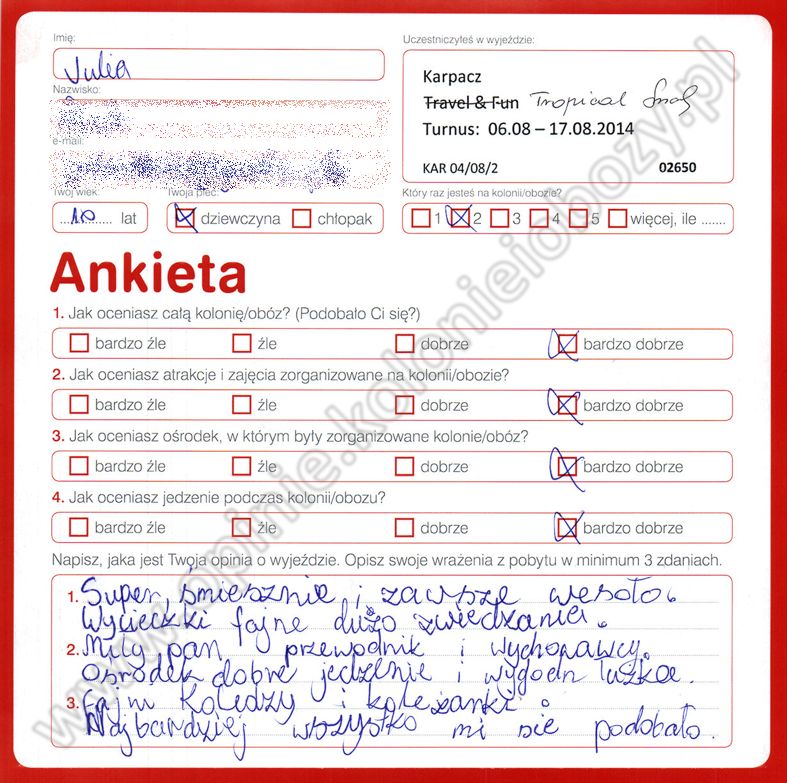 Imię:
Julia
Nazwisko:
e-mail:
Twój wiek:
10 lat
Twoja płeć:
dziewczyna chłopak
Uczestniczyłeś w wyjeździe:
Karpacz
Travel & Fun Tropical
Turnus: 06.08 – 17.08.2014
KAR 04/08/2 02650
Który raz jesteś na kolonii/obozie?
1 2 3 4 5 więcej, ile .......
Ankieta
1. Jak oceniasz całą kolonię/obóz? (Podobało Ci się?)
bardzo źle źle dobrze bardzo dobrze
2. Jak oceniasz atrakcje i zajęcia zorganizowane na kolonii/obozie?
bardzo źle źle dobrze bardzo dobrze
3. Jak oceniasz ośrodek, w którym były zorganizowane kolonie/obóz?
bardzo źle źle dobrze bardzo dobrze
4. Jak oceniasz jedzenie podczas kolonii/obozu?
bardzo źle źle dobrze bardzo dobrze
Napisz, jaka jest Twoja opinia o wyjeździe. Opisz swoje wrażenia z pobytu w minimum 3 zdaniach.
1. Super, śmiesznie i zawsze wesoło.
Wycieczki fajne dużo zwiedzania.
2. Miły pan przewodnik i wychowawcy.
Ośrodek dobre jedzenie i łużka.
3. Fajni koledzy i koleżanki.
Najbardziej wszystko mi sie podobało.
www.opinie.kolonieiobozy.pl